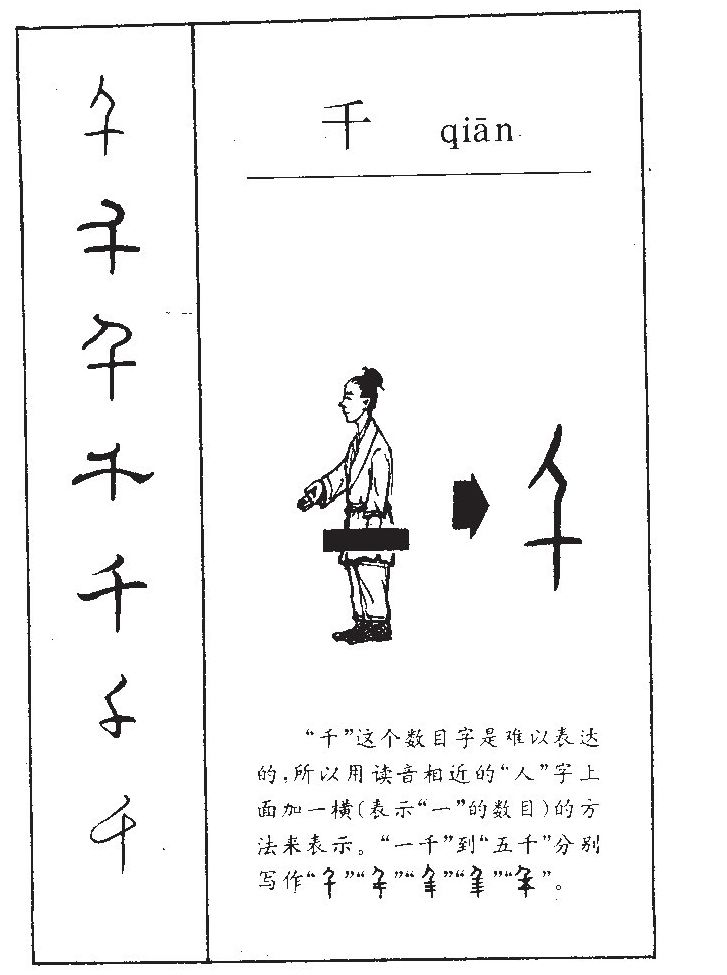 千 qiān
“千”这个数目字是难以表达
的,所以用读音相近的“人”字上
面加一横(表示“一”的数目)的方
法来表示。“一千”到“五千”分别
写作“ ”“ ”“ ”“ ”“ ”。
千
千
千
千
千
千
千